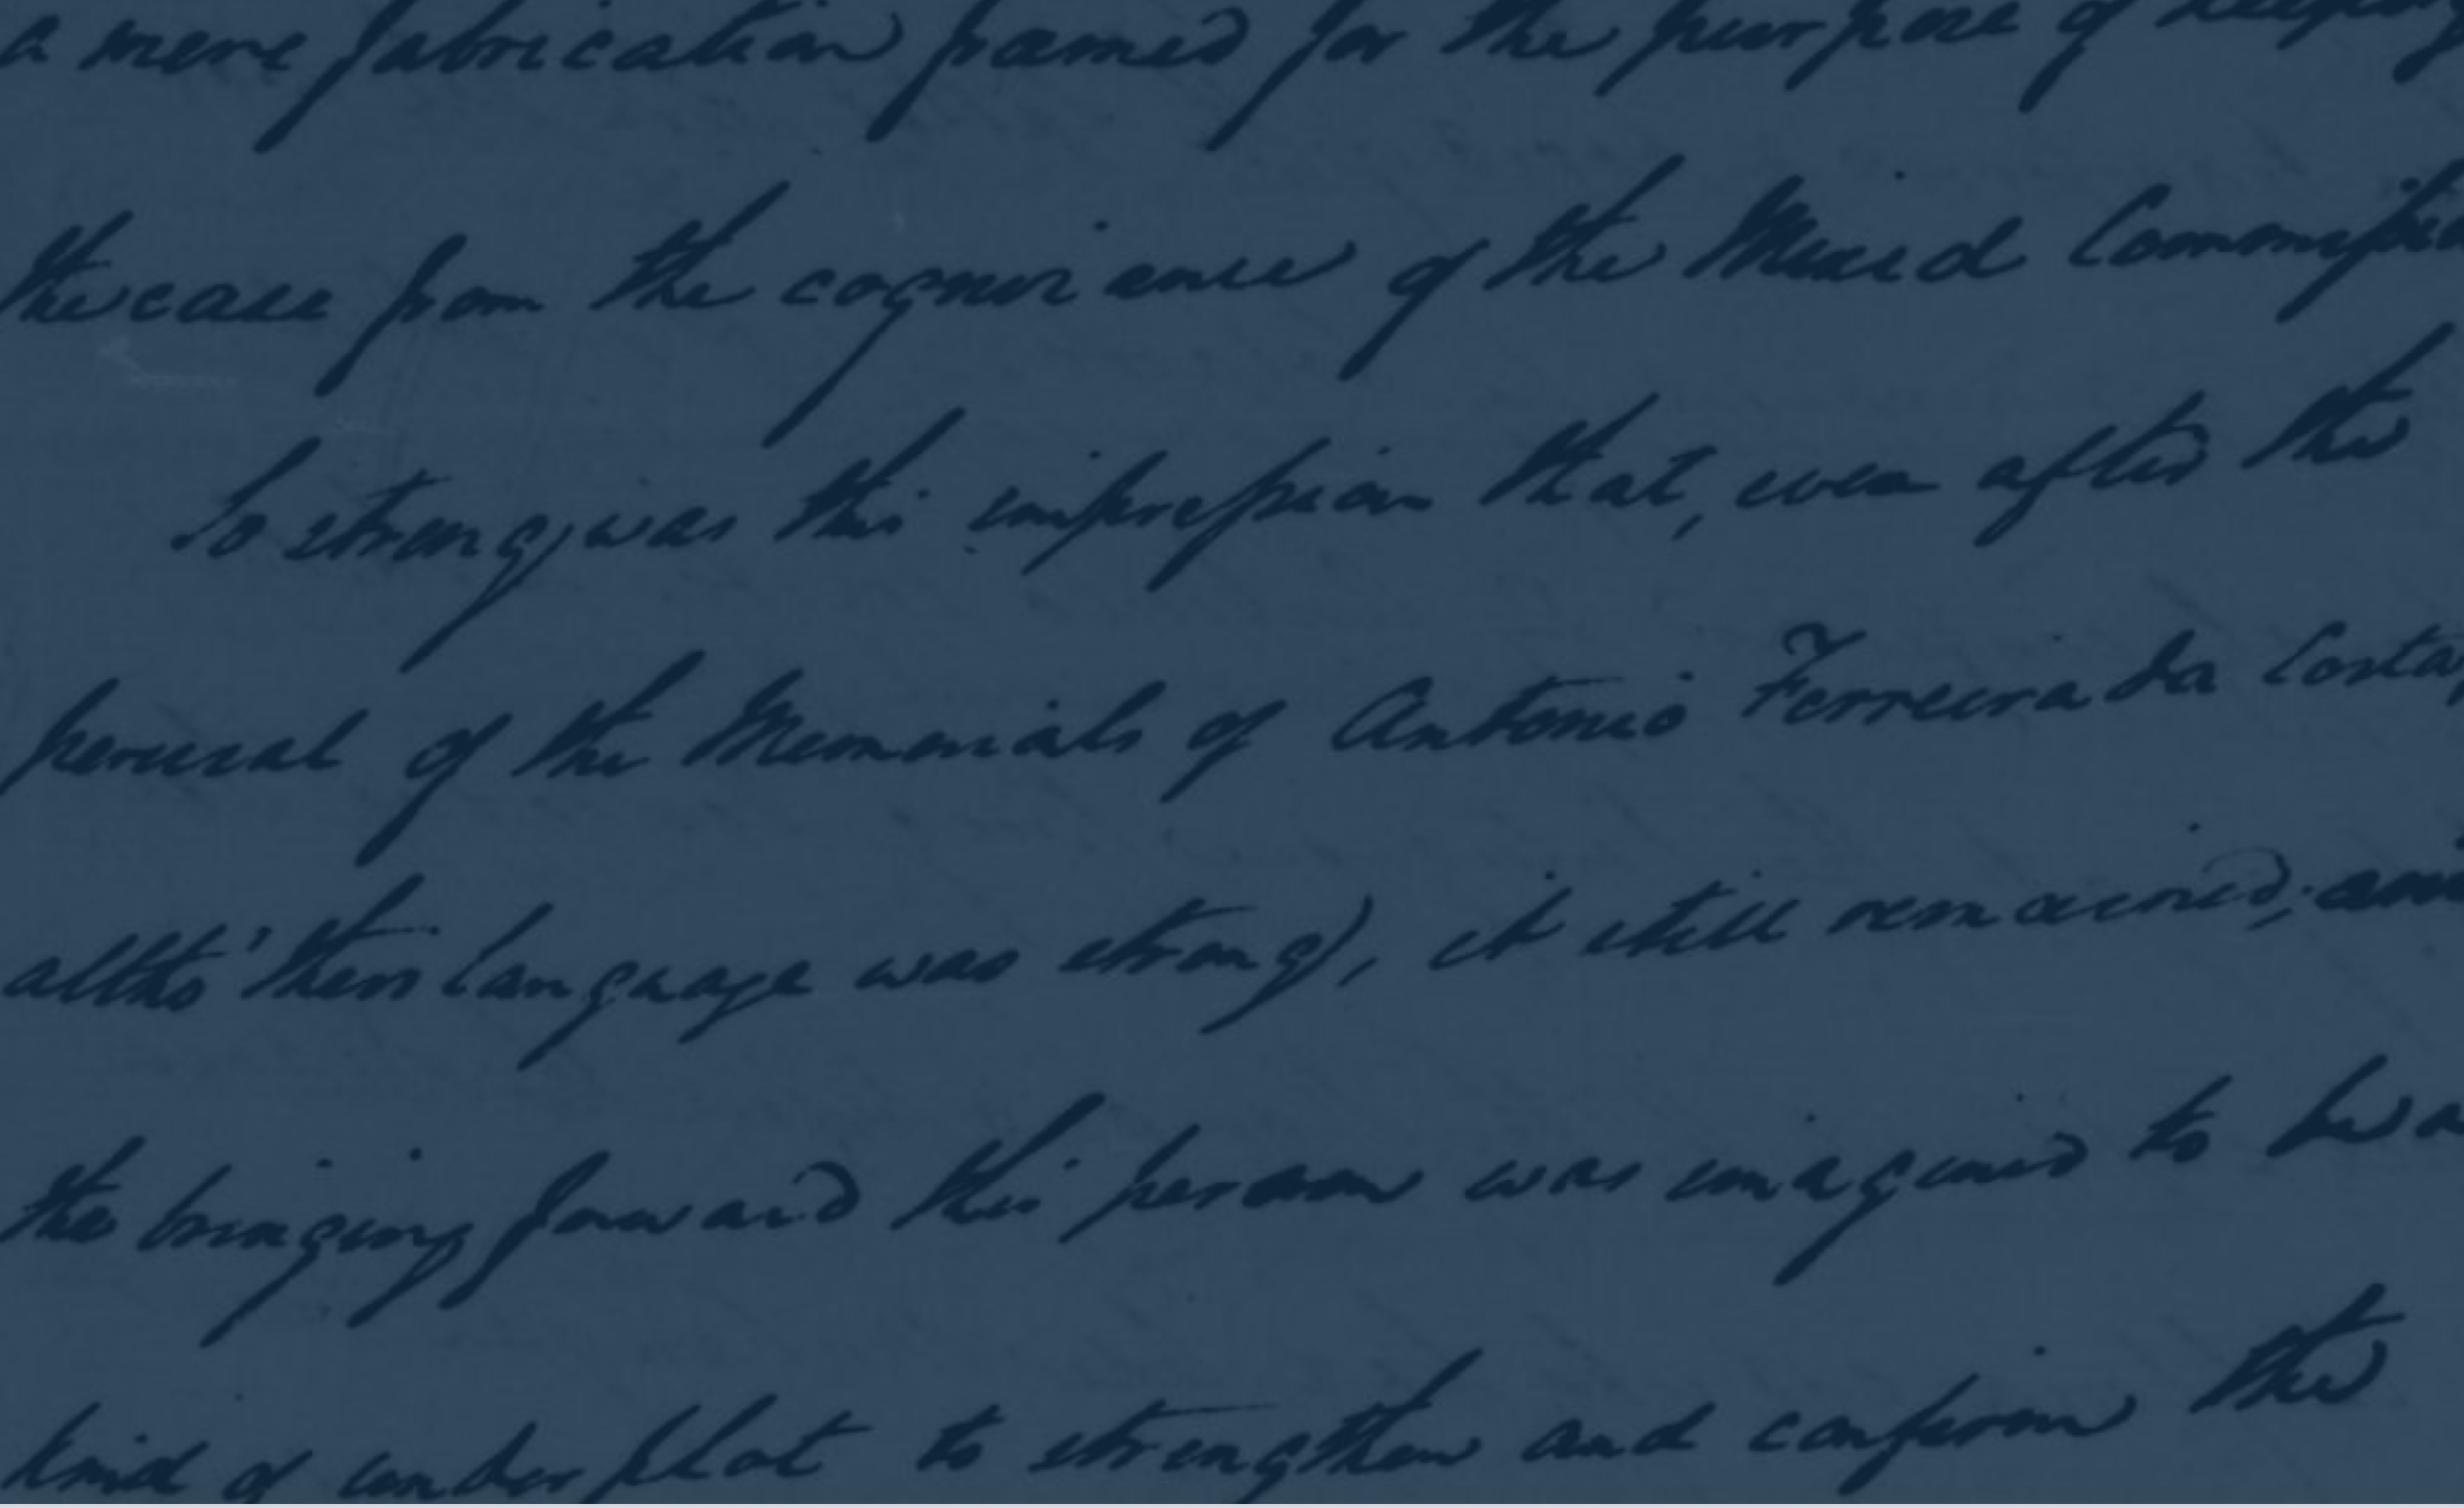 a mere fabrication framed for the purpose of keeping
the case from the cognizance of the Mixed Commission
So strong was this impression that, even after the
perusal of the Memorials of Antonio Ferreira da Costa,
altho' their language was strong, it still remained, and
the bringing forward this person was imagined to be a
kind of under plot to strengthen and confirm the